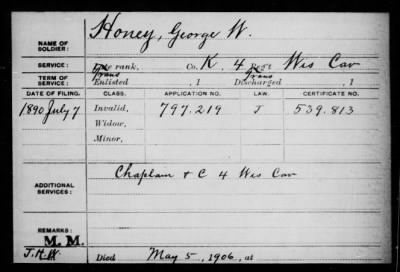 NAME OF SOLDIER: Honey, George W.
SERVICE: Late rank, Co. K, 4 Reg't Wis Cav
TERM OF SERVICE: Trans Enlisted , 1 Trans Discharged , 1
DATE OF FILING. CLASS. APPLICATION NO. LAW. CERTIFICATE NO.
1890 July 7 Invalid, 797.219 J 539.813
Widow,
Minor,
ADDITIONAL SERVICES: Chaplain & C 4 Wis Cav
REMARKS:
M. M.
Died May 5, 1906, at